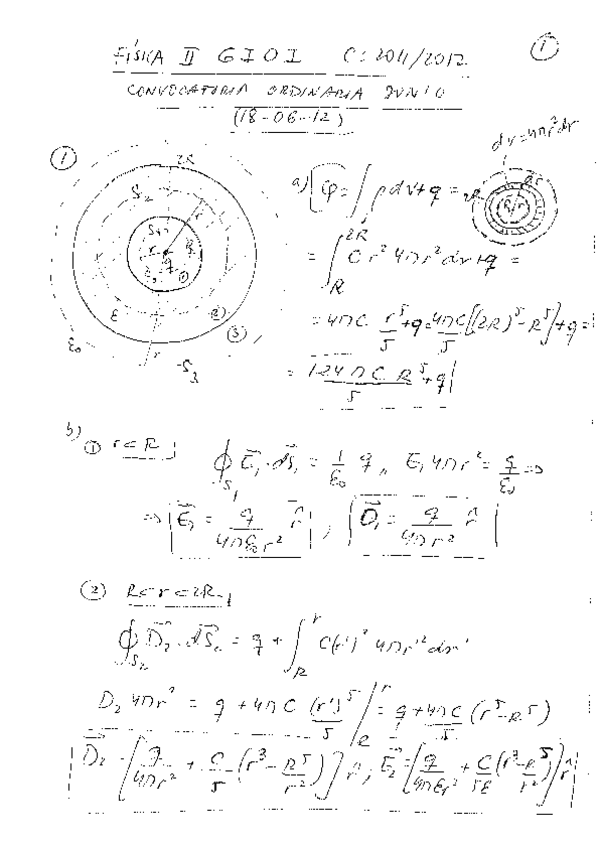 1
FÍSICA II GIOI C: 2011/2012
CONVOCATORIA ORDINARIA JUNIO
(18-06-12)
① 2R
dv=4πr²dr
a) φ = ∫ ρdv+q =
= ∫_R^{2R} C r² 4πr² dr+q =
= 4πC r⁵/5 +q = 4πC/5 [(2R)⁵ - R⁵] + q =
= 124πC R⁵/5 + q
S₂
S₁
r
R
q
①
ε
②
③
ε₀
r
S₃
b) ① r<R
∮_{S₁} E₁·dS₁ = 1/ε₀ q, E₁4πr² = q/ε₀ =>
=> E₁ = q/4πε₀r² r̂, D₁ = q/4πr² r̂
② R<r<2R
∮_{S₂} D₂·dS₂ = q + ∫_R^r C(r')² 4πr'² dr'
D₂ 4πr² = q + 4πC (r')⁵/5 |_R^r = q + 4πC/5 (r⁵-R⁵)
D₂ = [q/4πr² + C/5 (r³ - R⁵/r²)] r̂; E₂ = [q/4πεr² + C/5ε (r³ - R⁵/r²)] r̂